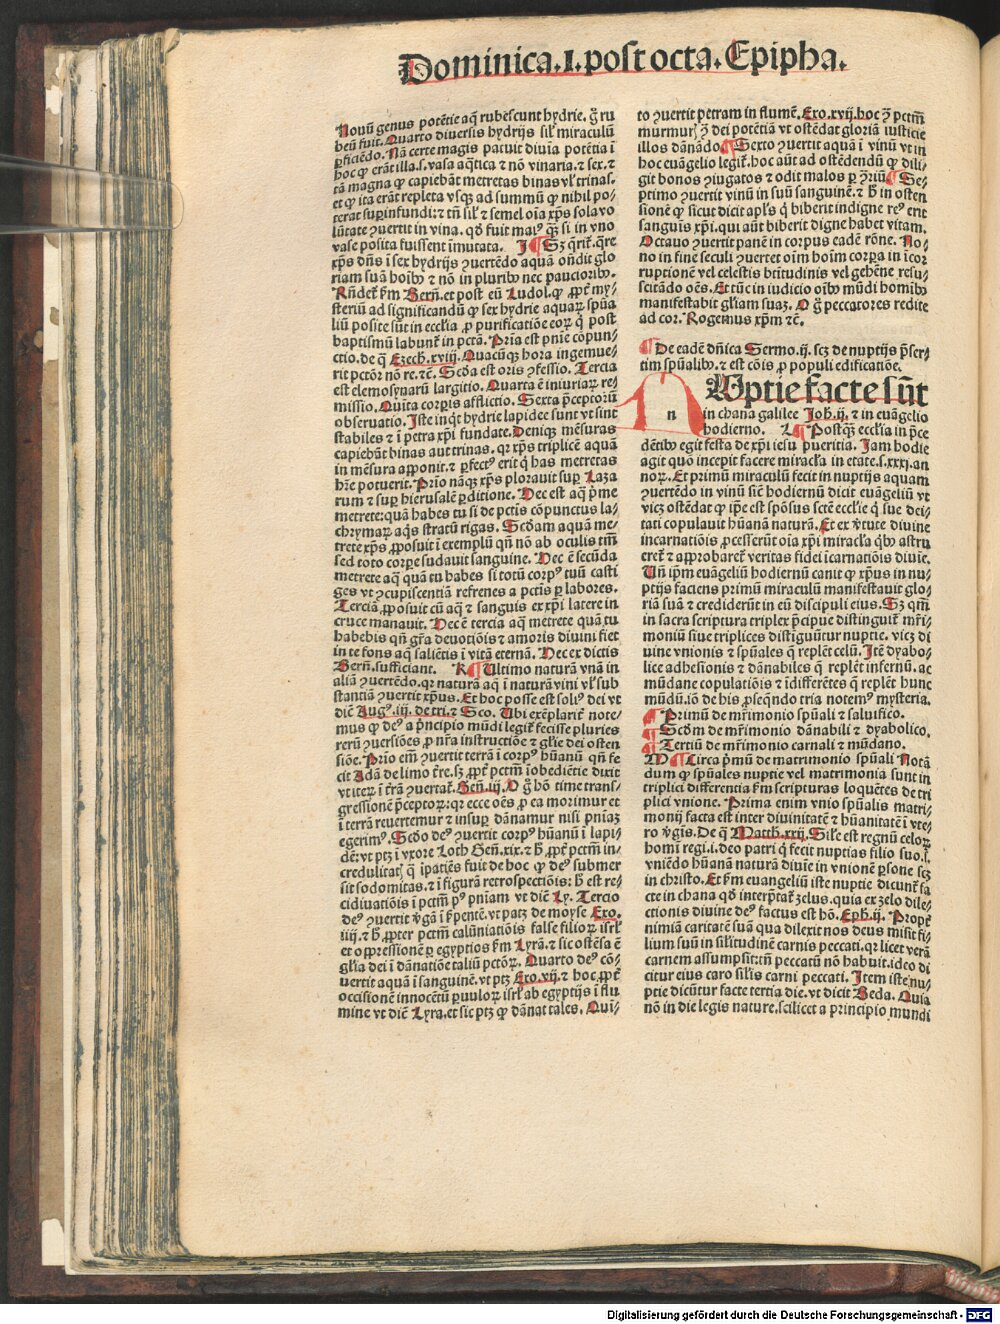 Dominica.I.post octa.Epipha.
Nouũ genus potẽtie aq̃ rubescunt hydrie. g̃ ru
beũ fuit. Quarto diuersis hydrijs sil̃ miraculũ
ꝑficiẽdo. Nã certe magis patuit diuia potẽtia ĩ
hoc ꝙ erãt illa.s.vasa aq̃tica ⁊ nõ vinaria. ⁊ sex. ⁊
tã magna ꝙ capiebãt metretas binas vl̃ trinas.
et ꝙ ita erãt repleta vsq; ad summũ ꝙ nihil po-
terat supinfundi: ⁊ tñ sil̃ ⁊ semel oĩa xp̃s sola vo
lũtate ꝯuertit in vina. qð fuit maiꝰ q̃; si in vno
vase posita fuissent ĩmutata. I Sꝫ q̃rit̃. q̃re
xp̃s dñs ĩ sex hydrijs ꝯuertẽdo aquã oñdit glo
riam suã hoĩbꝰ ⁊ nõ in pluribꝰ nec paucioribꝰ.
Rñdet̃ ẜm Berñ. et post eũ Ludol. ꝙ ꝓpt̃ my-
steriũ ad significandũ ꝙ sex hydrie aquaꝝ spũa
liũ posite sũt in eccl̃ia ꝓ purificatiõe eoꝝ q̃ post
baptismũ labunt̃ in pctã. Prĩa est pnĩe cõpun-
ctio. de q̃ Ezech.xviij. Quacũq; hora ingemue-
rit pctõr nõ re. ⁊c̃. Scða est oris ꝯfessio. Tercia
est elemosynaꝝ largitio. Quarta ẽ iniuriaꝝ re-
missio. Quĩta corꝑis afflictio. Sexta p̃ceptoꝝ
obseruatio. Iste inq̃t hydrie lapidee sunt vt sint
stabiles ⁊ ĩ petra xp̃i fundate. Deniq; mẽsuras
capiebãt binas aut trinas. qꝛ xp̃s triplicẽ aquã
in mẽsura apponit. ⁊ ꝑfectꝰ erit q̃ has metretas
hr̃e potuerit. Prĩo nãq; xp̃s plorauit suꝑ Laza
rum ⁊ suꝑ hierusalẽ ꝑditione. Hec est aq̃ p̃me
metrete: quã habes tu si de pctis cõpunctus la-
chrymaꝝ aq̃s stratũ rigas. Scðam aquã me-
trete xp̃s ꝓposuit ĩ exemplũ qñ nõ ab oculis tm̃
sed toto corꝑe sudauit sanguine. Hec ẽ secũda
metrete aq̃ quã tu habes si totũ corpꝰ tuũ casti
ges vt ꝯcupiscentiã refrenes a pctis ꝑ labores.
Terciã ꝓposuit cũ aq̃ ⁊ sanguis ex xp̃i latere in
cruce manauit. Hec ẽ tercia aq̃ metrete quã tu
habebis qñ gr̃a deuotiõis ⁊ amoris diuini fiet
in te fons aq̃ saliẽtis ĩ vitã eternã. Hec ex dictis
Berñ. sufficiant. K Ultimo naturã vnã in
aliã ꝯuertẽdo. qꝛ naturã aq̃ ĩ naturã vini vl̃ sub
stantiã ꝯuertit xp̃us. Et hoc posse est soliꝰ dei vt
diẽ Augꝰ.iij. de tri. ⁊ Sco. Ubi exẽplarit̃ note-
mus ꝙ deꝰ a p̃ncipio mũdi legit̃ fecisse pluries
rerũ ꝯuersiões ꝓ nr̃a instructiõe ⁊ gl̃ie dei osten
siõe. Prĩo em̃ ꝯuertit terrã ĩ corpꝰ hũanũ qñ fe
cit Adã de limo t̃re. sꝫ ꝓpt̃ pctm̃ ĩobediẽtie dixit
vt iteꝝ ĩ t̃rã ꝯuertat̃. Geñ.iij. O g̃ hõ time trans-
gressionẽ p̃ceptoꝝ: qꝛ ecce oẽs ꝓ ea morimur et
ĩ terrã reuertemur ⁊ insuꝑ dãnamur nisi pniaꝫ
egerimꝰ. Scðo deꝰ ꝯuertit corpꝰ hũanũ ĩ lapi-
dẽ: vt ptꝫ ĩ vxore Loth Geñ.xix. ⁊ h̃ ꝓpt̃ pctm̃ in-
credulitatꝭ q̃ ĩpatiẽs fuit de hoc ꝙ deꝰ submer
sit sodomitas. ⁊ ĩ figurã retrospectiõis: h̃ est re-
cidiuatiõis ĩ pctm̃ pꝰ pniam vt diẽ Ly. Tercio
deꝰ ꝯuertit v̓gã ĩ ẜpentẽ. vt patꝫ de moyse Exo.
iiij. ⁊ h̃ ꝓpter pctm̃ calũniatiõis false filioꝝ isrl̃
et oppressione ꝑ egyptios ẜm Lyrã. ⁊ sic ostẽsa ẽ
gl̃ia dei ĩ dãnatiõe taliũ pctõꝝ. Quarto deꝰ cõ-
uertit aquã ĩ sanguinẽ. vt ptꝫ Exo.vij. ⁊ hoc ꝓpt̃
occisionẽ innocẽtũ ꝑuuloꝝ isrl̃ ab egyptijs ĩ flu
mine vt diẽ Lyra. et sic ptꝫ ꝙ dãnat tales. Qui-
to ꝯuertit petram in flumẽ. Exo.xvij. hoc ꝯ̃ pctm̃
murmurꝭ ꝯ̃ dei potẽtiã vt ostẽdat gloriã iusticie
illos dãnãdo. Sexto ꝯuertit aquã ĩ vinũ vt in
hoc euãgelio legit̃. hoc aũt ad ostẽdendũ ꝙ dili-
git bonos ꝯiugatos ⁊ odit malos ꝑ ꝯ̃riũ. Se-
ptimo ꝯuertit vinũ in suũ sanguinẽ. ⁊ h̃ in osten
sionẽ ꝙ sicut dicit apl̃s q̃ biberit indigne reꝰ erit
sanguis xp̃i. qui aũt biberit digne habet vitam.
Octauo ꝯuertit panẽ in corpus eadẽ rõne. No-
no in fine seculi ꝯuertet oĩm hoĩm corꝑa in ĩcor
ruptionẽ vel celestis bt̃itudinis vel gehẽne resu-
scitãdo oẽs. Et tũc in iudicio oĩbꝰ mũdi homĩbꝰ
manifestabit gl̃iam suaꝫ. O g̃ peccatores redite
ad cor. Rogemus xp̃m ⁊c̃.
De eadẽ dñica Sermo.ij. scꝫ de nuptijs p̃ser-
tim spũalibꝰ. ⁊ est cõis ꝓ populi edificatiõe.
n Uptie facte sũt
in chana galilee Joh̃.ij. ⁊ in euãgelio
hodierno. L Postq̃; eccl̃ia in p̃ce
dẽtibꝰ egit festa de xp̃i iesu pueritia. Iam hodie
agit quo incepit facere miracl̃a in etate.s.xxxj.an
noꝝ. Et primũ miraculũ fecit in nuptijs aquam
ꝯuertẽdo in vinũ sic̃ hodiernũ dicit euãgeliũ vt
vicꝫ ostẽdat ꝙ ip̃e est spõsus scte eccl̃ie q̃ sue dei-
tati copulauit hũanã naturã. Et ex v̓tute diuine
incarnatiõis ꝓcesserũt oĩa xp̃i miracl̃a qbꝰ astru
eret̃ ⁊ approbaret̃ veritas fidei ĩcarnatiõis diuiẽ.
Uñ ip̃m euãgeliũ hodiernũ canit ꝙ xp̃us in nu-
ptijs faciens primũ miraculũ manifestauit glo-
riã suã ⁊ crediderũt in eũ discipuli eius. Sꝫ qm̃
in sacra scriptura triplex p̃cipue distinguit̃ mr̃i-
moniũ siue triplices distiguũtur nuptie. vicꝫ di
uine vnionis ⁊ spũales q̃ replẽt celũ. Itẽ dyabo-
lice adhesionis ⁊ dãnabiles q̃ replẽt infernũ. ac
mũdane copulatiõis ⁊ ĩdifferẽtes q̃ replẽt hunc
mũdũ. iõ de his ꝓseqndo tria notemꝰ mysteria.
Primũ de mr̃imonio spũali ⁊ saluifico.
Scðm de mr̃imonio dãnabili ⁊ dyabolico.
Tertiũ de mr̃imonio carnali ⁊ mũdano.
M Circa p̃mũ de matrimonio spũali Notã
dum ꝙ spũales nuptie vel matrimonia sunt in
triplici differentia ẜm scripturas loquẽtes de tri
plici vnione. Prima enim vnio spũalis matri-
monij facta est inter diuinitatẽ ⁊ hũanitatẽ ĩ vte-
ro v̓gis. De q̃ Matth.xxij. Sil̃e est regnũ celoꝝ
homĩ regi.i.deo patri q̃ fecit nuptias filio suo.s̃.
vniẽdo hũanã naturã diuiẽ in vnionẽ ꝑsone scꝫ
in christo. Et ẜm euangeliũ iste nuptie dicunt̃ fa
cte in chana qð interp̃tat̃ zelus. quia ex zelo dile-
ctionis diuine deꝰ factus est hõ. Eph̃.ij. Propt̃
nimiã caritatẽ suã qua dilexit nos deus misit fi-
lium suũ in sil̃itudinẽ carnis peccati. qꝛ licet verã
carnem assumpsit: tñ peccatũ nõ habuit. ideo di
citur eius caro sil̃is carni peccati. Item iste nu-
ptie dicũtur facte tertia die. vt dicit Beda. Quia
nõ in die legis nature. scilicet a principio mundi
Digitalisierung gefördert durch die Deutsche Forschungsgemeinschaft - DFG